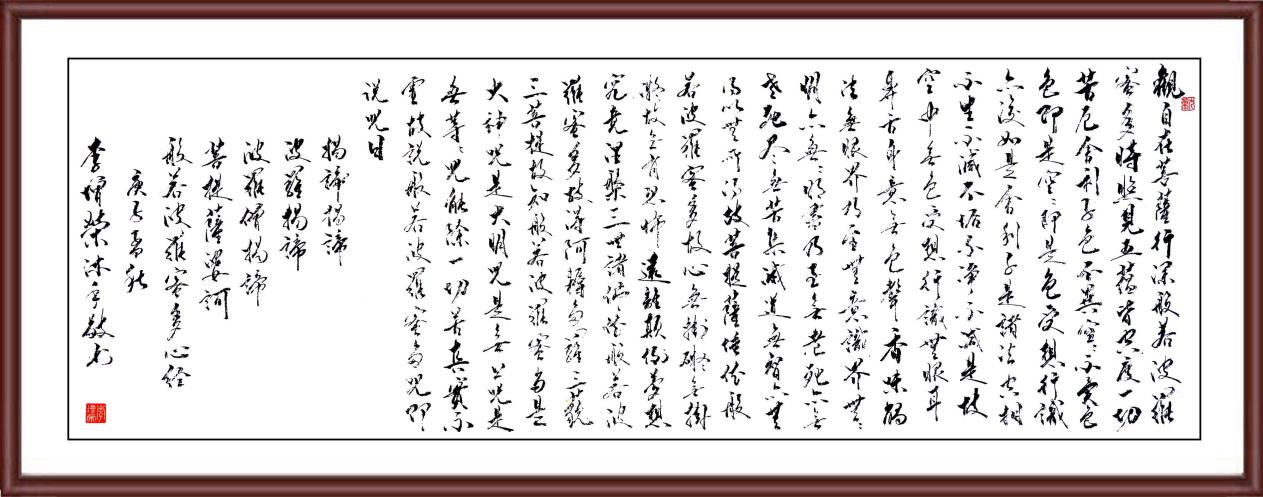 觀自在菩薩行深般若波羅
蜜多時照見五蘊皆空度一切
苦厄舍利子色不異空〻不異色
色即是空〻即是色受想行識
亦復如是舍利子是諸法空相
不生不滅不垢不淨不減是故
空中無色受想行識無眼耳
鼻舌身意無色聲香味觸
法無眼界乃至無意識界無〻
明亦無〻明盡乃至無老死亦無
老死盡無苦集滅道無智亦無
得以無所得故菩提薩埵依般
若波羅蜜多故心無掛礙無掛
礙故無有恐怖遠離顛倒夢想
究竟涅槃三世諸佛依般若波
羅蜜多故得阿耨多羅三藐
三菩提故知般若波羅蜜多是
大神咒是大明咒是無上咒是
無等〻咒能除一切苦真實不
虛故說般若波羅蜜多咒即
說咒曰
揭諦揭諦
波羅揭諦
波羅僧揭諦
菩提薩婆訶
般若波羅蜜多心經
庚子
李增榮沐手敬書